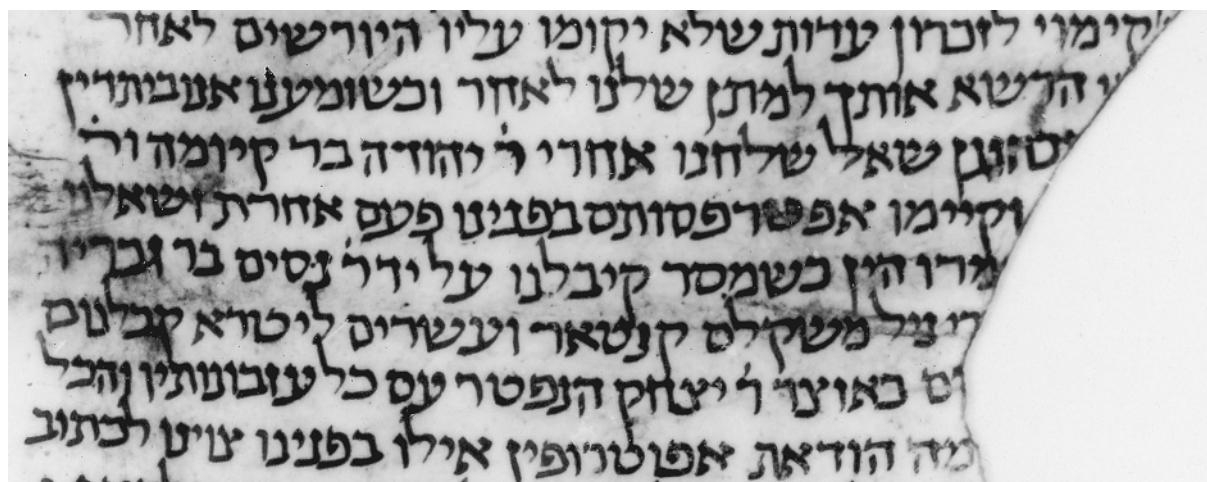 קימוי לזכרון עדות שלא יקומו עליו היורשים לאחר
הרשא אותך למתן שלנו לאחר וכשומענו אנו בית דין
שאל שלחנו אחרי ר׳ יהודה בר קיומה ור׳
וקיימו אפטרפסותם בפנינו פעם אחרת ושאלנו
הין כשמסר קיבלנו על יד ר׳ נסים בר גבריה
משקלם קנטאר ועשרים ליטרא קבלנום
באוצר ר׳ יצחק הנפטר עם כל עזבונותיו והכל
מה הודאת אפוטרופין אילו בפנינו צוינו לכתוב